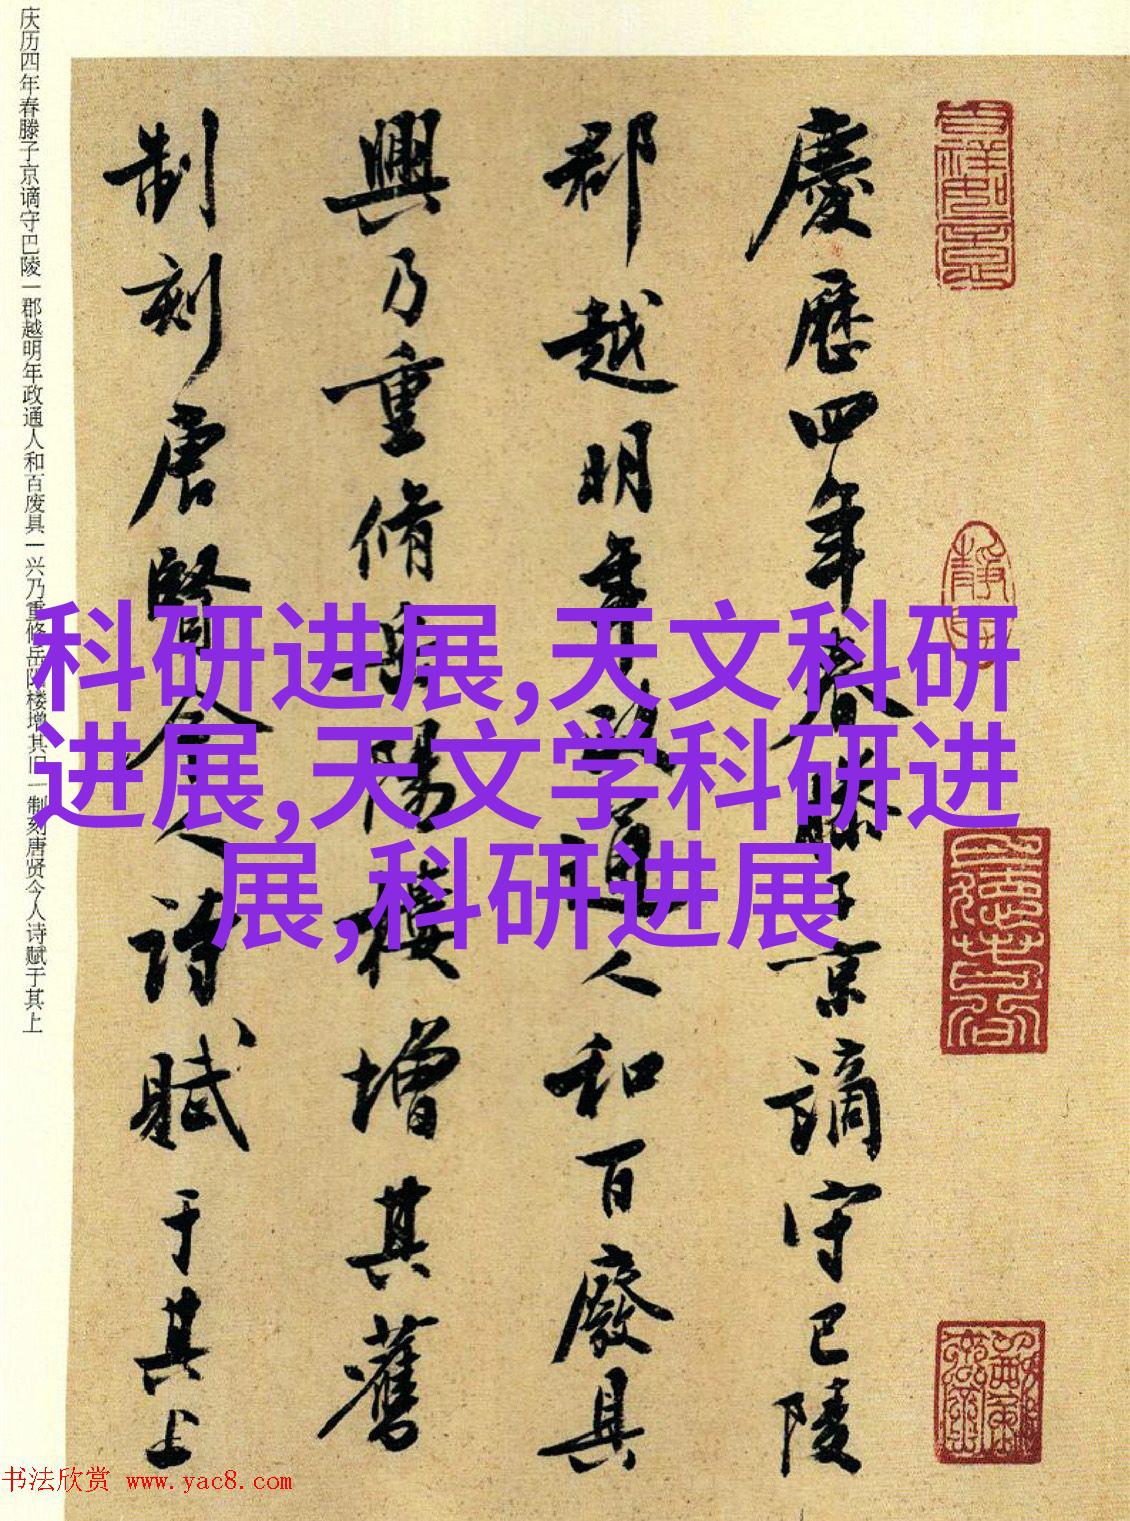 慶歷四年春滕子京谪守巴陵
郡越明年政通人和百廢具
興乃重脩岳陽樓增其舊
制刻唐賢今人诗赋于其上
庆历四年春滕子京谪守巴陵一郡越明年政通人和百废具一兴乃重修岳阳楼增其旧一制刻唐贤今人诗赋于其上
科研进展,天文科研
进展,天文学科研进
展,科研进展
书法欣赏 www.yac8.com